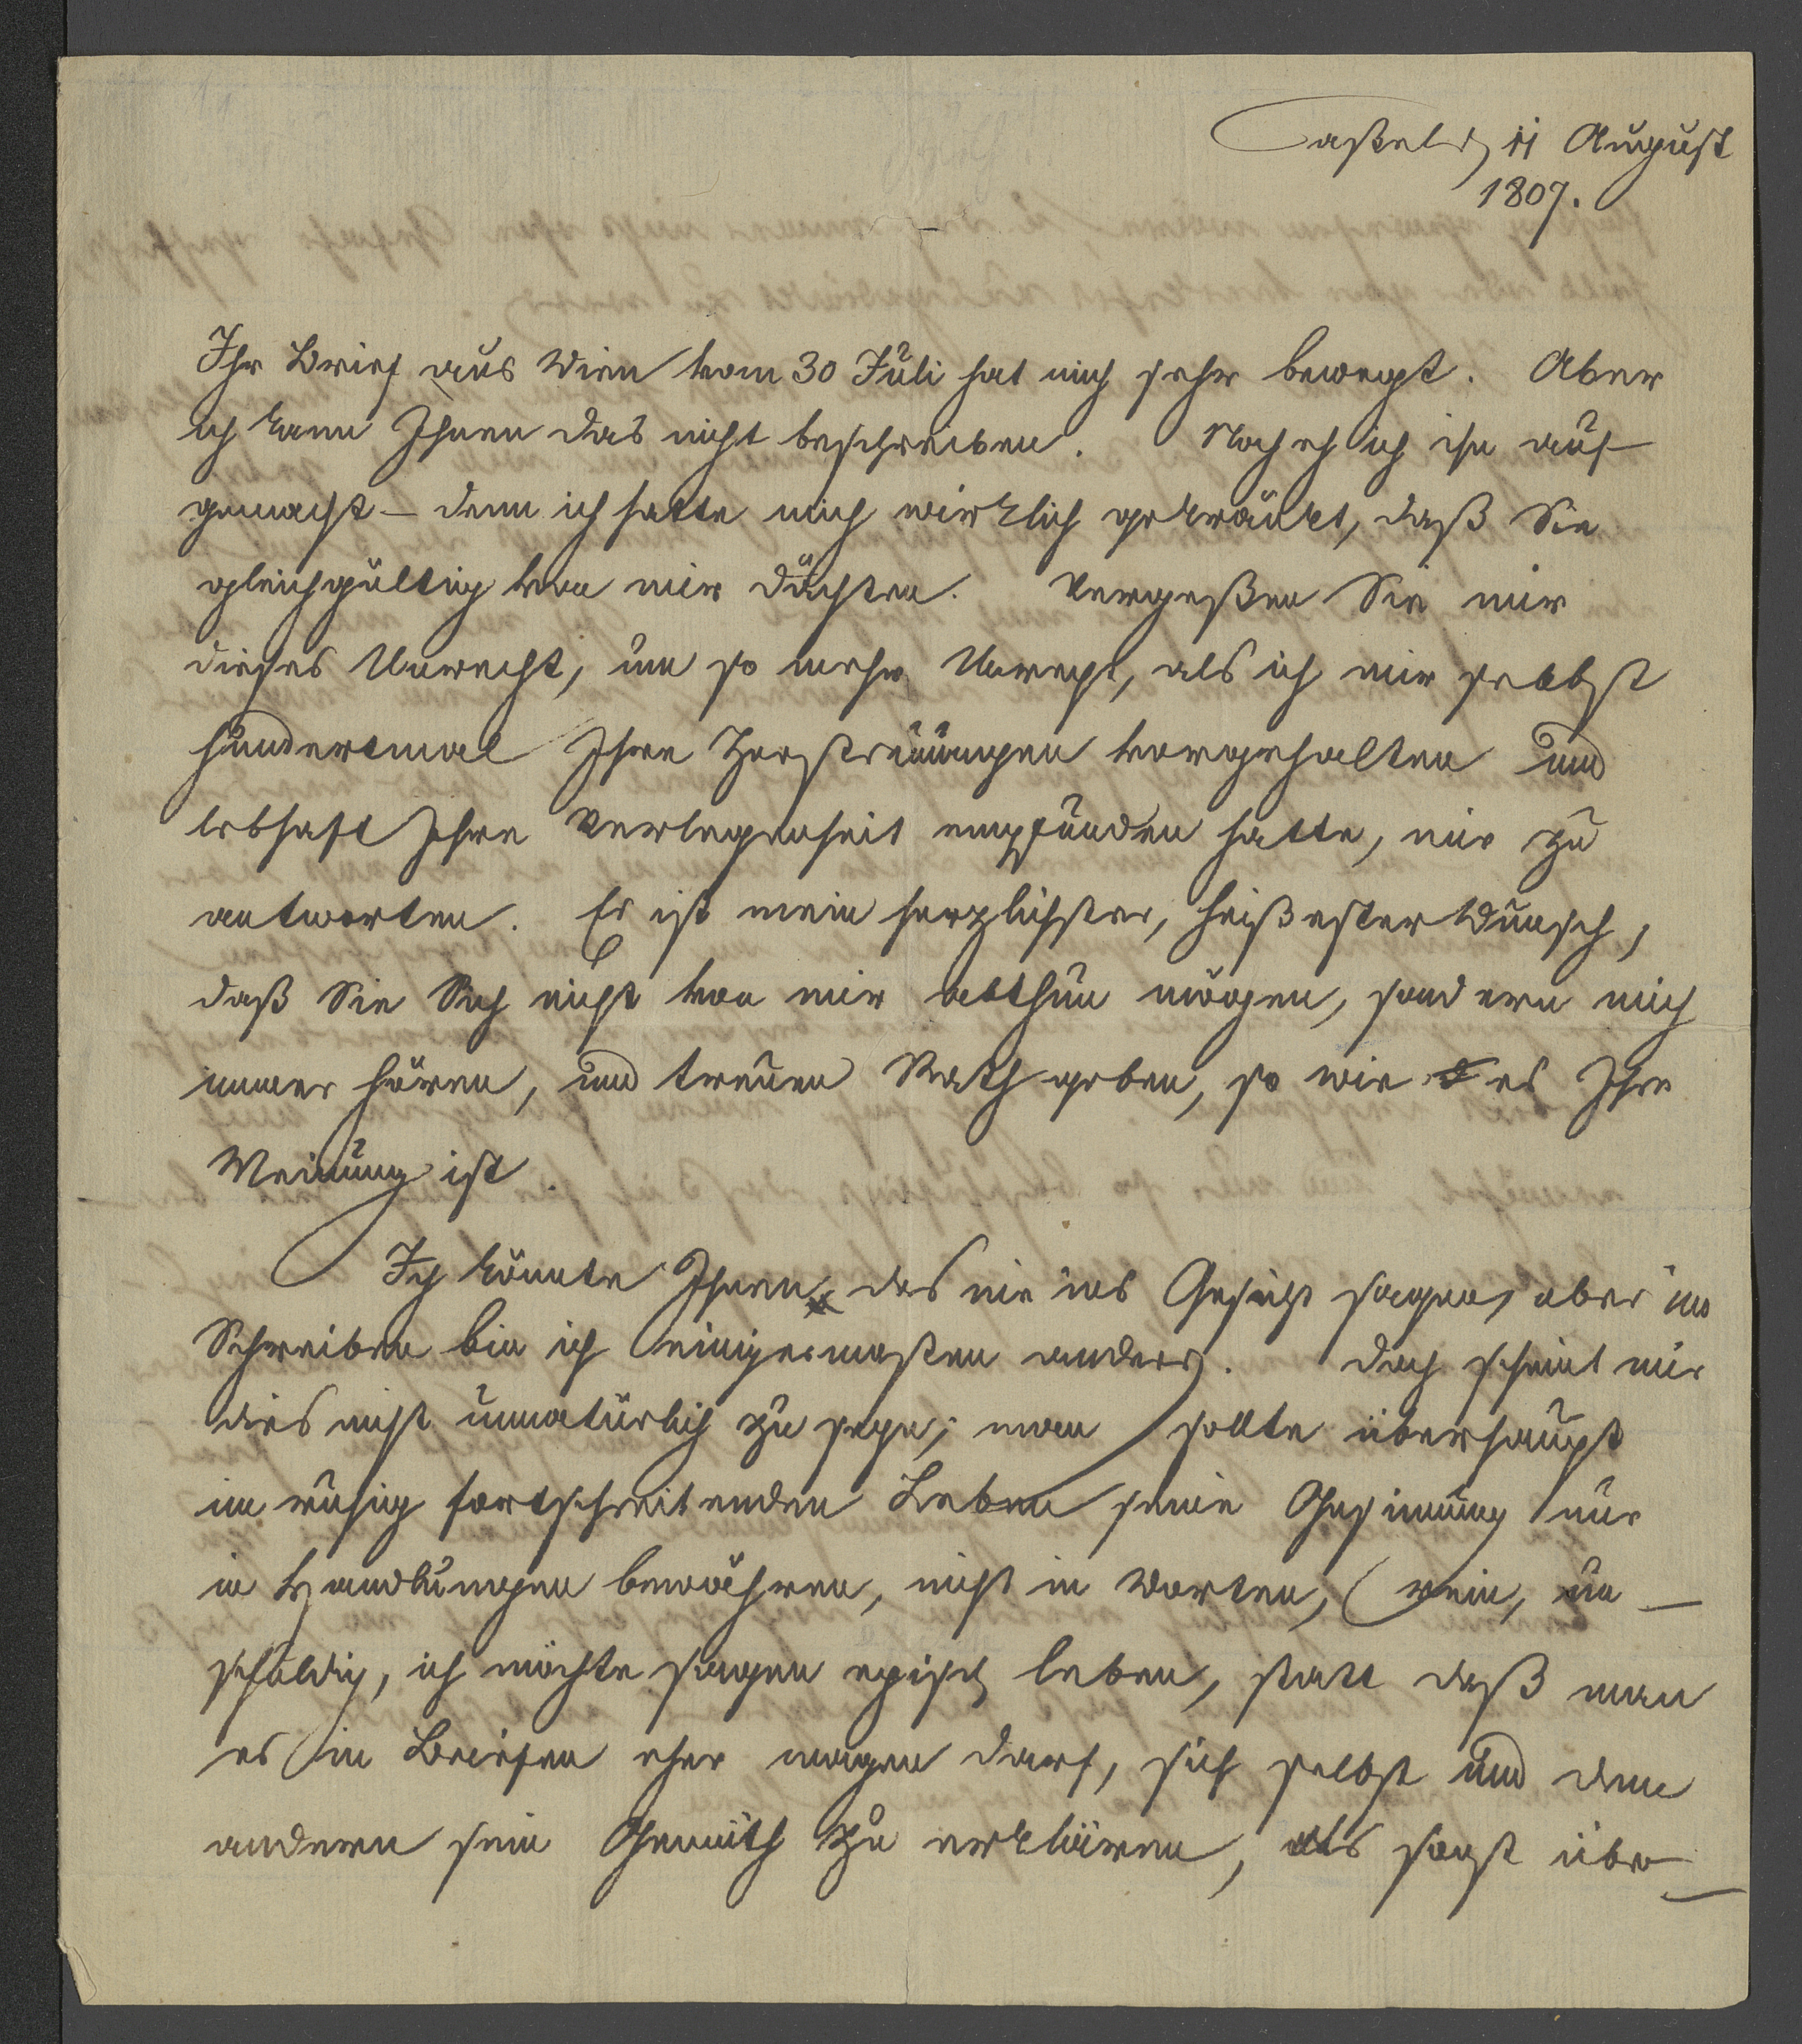 Caßel d 11 August
1807.
Ihr Brief aus Wien vom 30 Juli hat mich sehr bewegt. Aber
ich kann Ihnen das nicht beschreiben. Noch eh ich ihn auf-
gemacht – denn ich hatte mich wirklich gekränkt, daß Sie
gleichgültig von mir dächten. Vergeßen Sie mir
dieses Unrecht, um so mehr Unrecht, als ich mir selbst
hundertmal Ihre Zerstreuungen vorgehalten und
lebhaft Ihre Verlegenheit empfunden hatte, mir zu
antworten. Es ist mein herzlichster, heißester Wunsch,
daß Sie Sich nicht von mir abthun mögen, sondern mich
immer hören, und treuen Rath geben, so wie es Ihre
Meinung ist.
Ich könnte Ihnen das nie ins Gesicht sagen, aber im
Schreiben bin ich einigermaßen anders. Doch scheint mir
dies nicht unnatürlich zu seyn; man sollte überhaupt
im ruhig fortschreitenden Leben seine Gesinnung nur
in Handlungen bewähren, nicht in Worten, rein, un-
schuldig, ich möchte sagen episch leben, statt daß man
es in Briefen eher wagen darf, sich selbst und dem
andern sein Gemüth zu erklären, als sonst über-